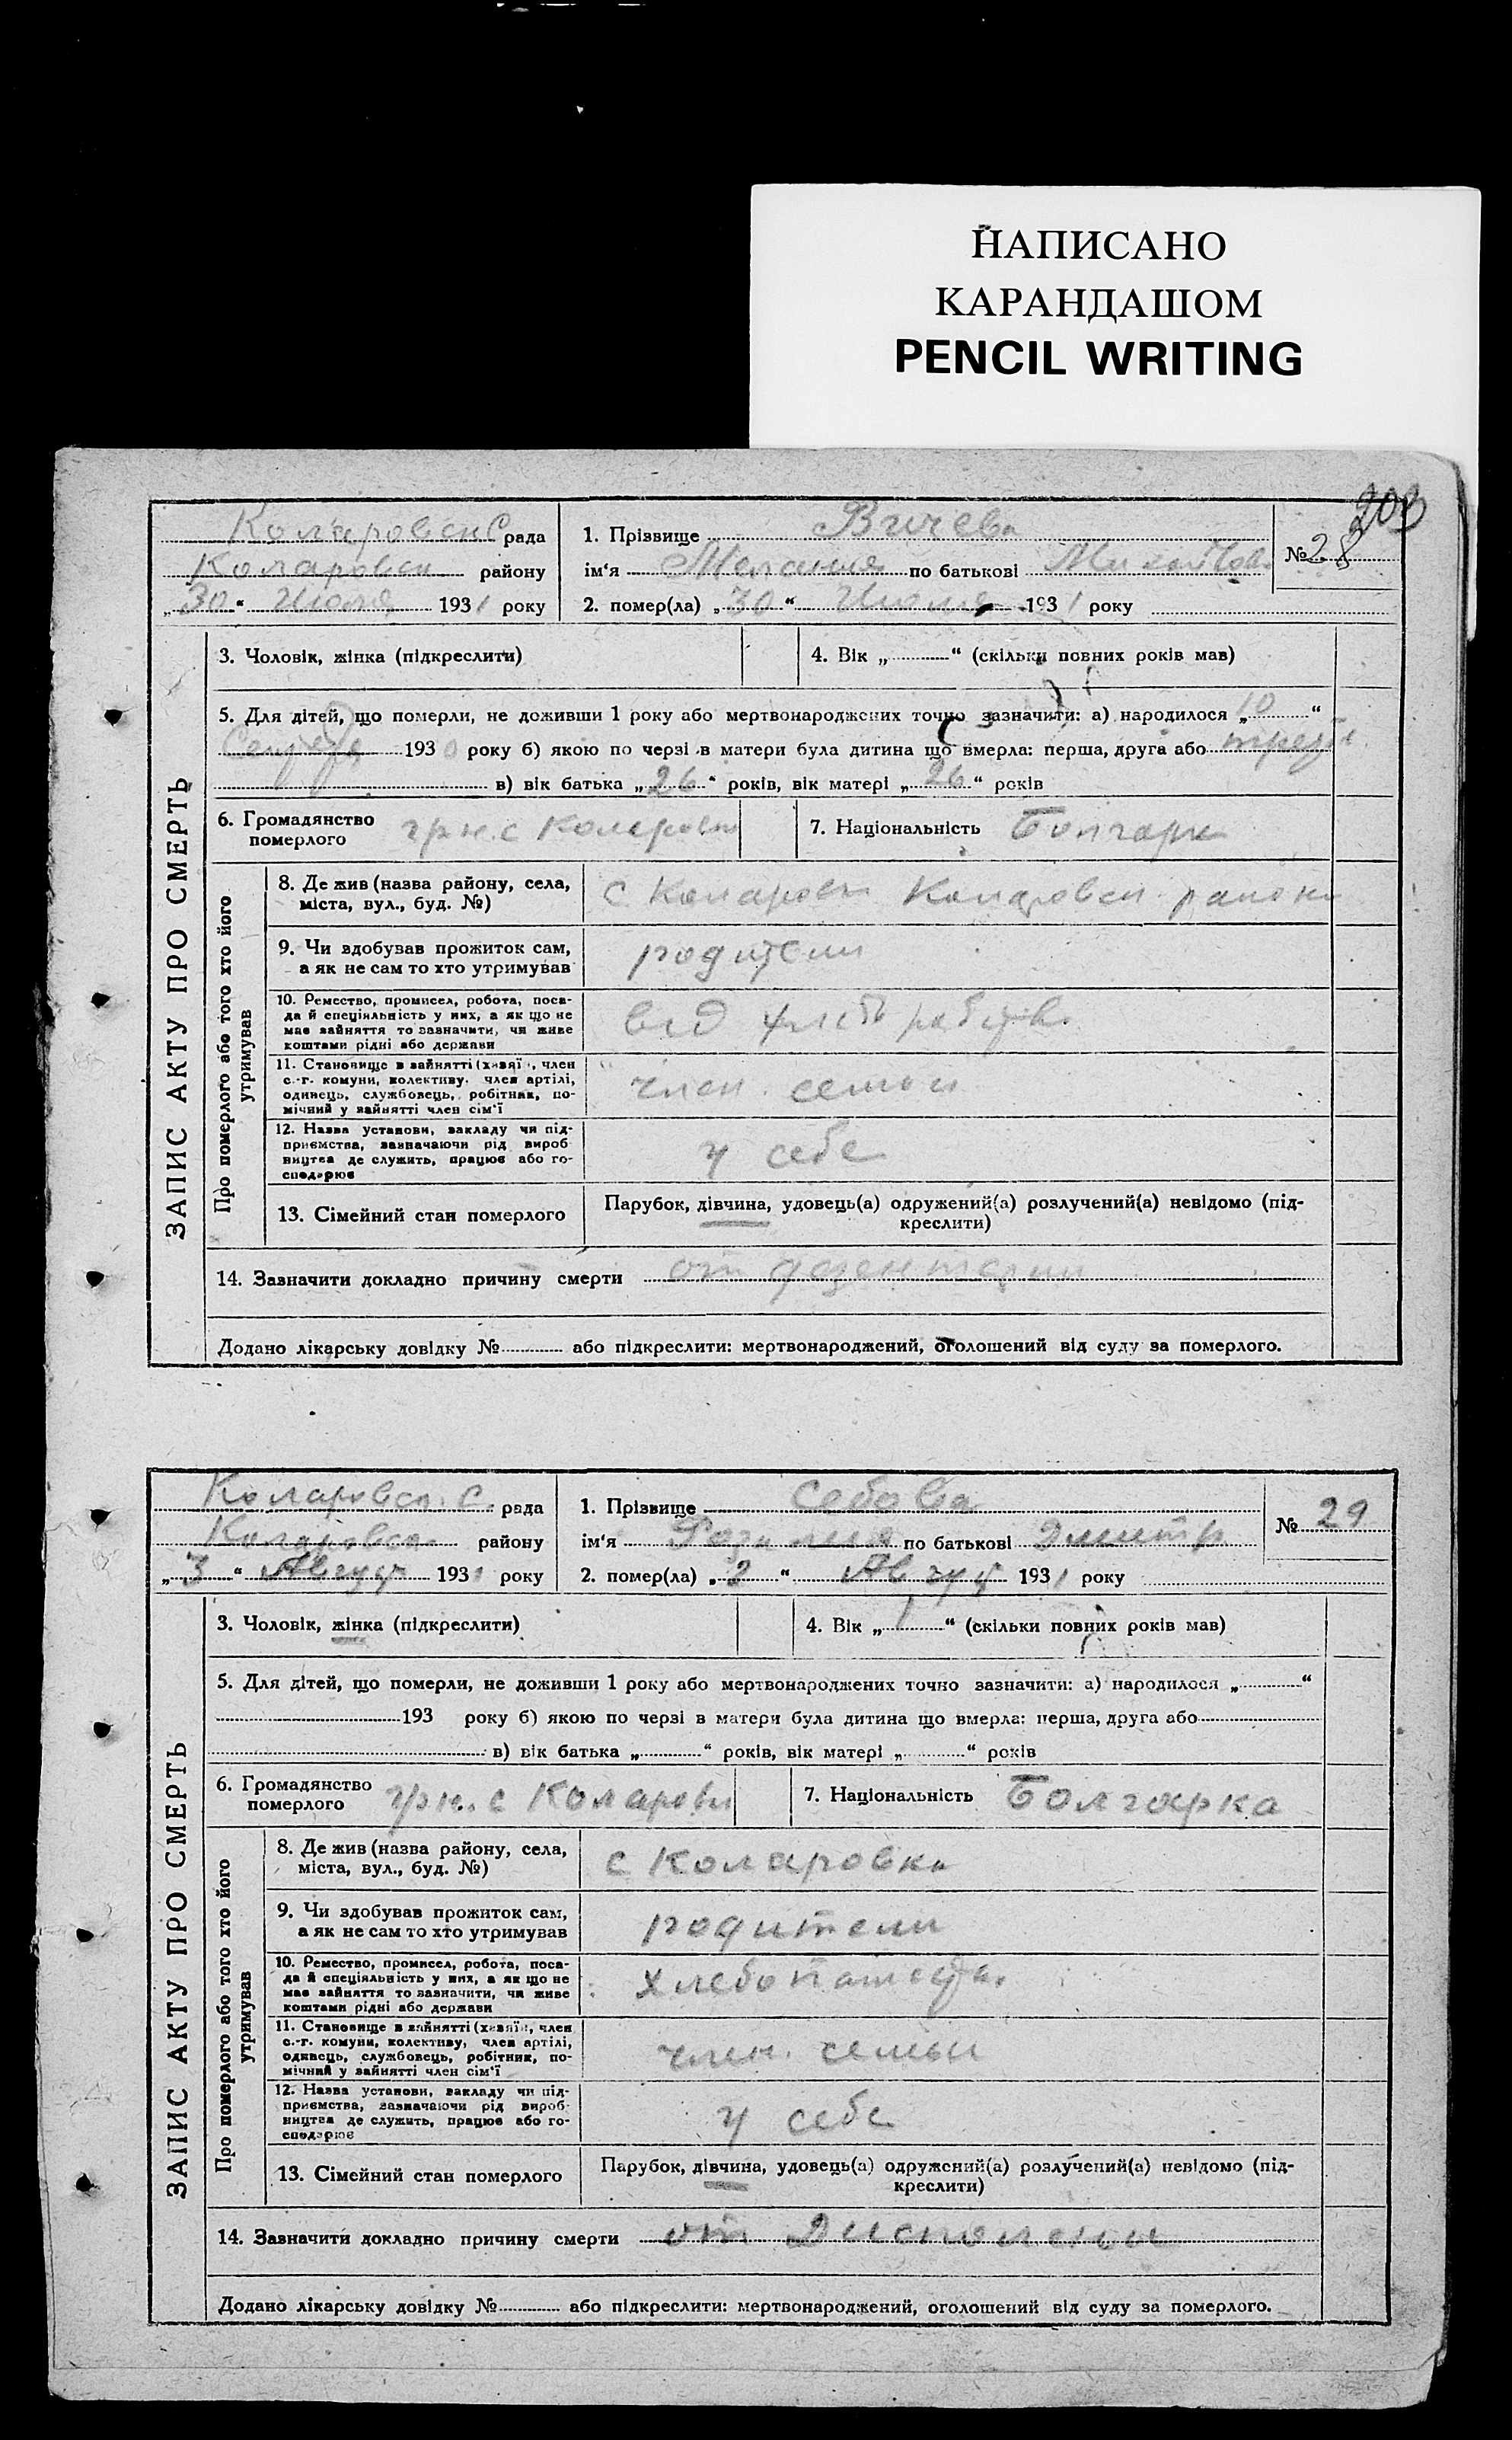 НАПИСАНО
КАРАНДАШОМ
PENCIL WRITING
203
ЗАПИС АКТУ ПРО СМЕРТЬ
Коларовск С рада
Коларовск району
„30“ Июля 1931 року
1. Прізвище
ім'я Мелания по батькові Михайлов
2. помер(ла) „30“ Июля 1931 року
№ 28
3. Чоловік, жінка (підкреслити)
4. Вік „ “ (скільки повних років мав)
5. Для дітей, що померли, не доживши 1 року або мертвонароджених точно зазначити: а) народилося „10“
193 року б) якою по черзі в матери була дитина що вмерла: перша, друга або
в) вік батька „26“ років, вік матері „26“ років
6. Громадянство
померлого
грн. с Коларовки
7. Національність Болгарк
Про померлого або того хто його
утримував
8. Де жив (назва району, села,
міста, вул., буд. №)
с Коларовк Коларовск района
9. Чи здобував прожиток сам,
а як не сам то хто утримував
родители
10. Ремество, промисел, робота, поса-
да й спеціяльність у них, а як що не
має зайняття то зазначити, чи живе
коштами рідні або держави
11. Становище в зайнятті (хазяїн, член
с.-г. комуни, колективу, член артілі,
одинець, службовець, робітник, по-
мічний у зайнятті член сім'ї
член. семьи
12. Назва установи, закладу чи під-
приємства, зазначаючи рід вироб-
ництва де служить, працює або го-
сподарює
у себе
13. Сімейний стан померлого
Парубок, дівчина, удовець(а) одружений(а) розлучений(а) невідомо (під-
креслити)
14. Зазначити докладно причину смерти от дезентерии
Додано лікарську довідку № або підкреслити: мертвонароджений, оголошений від суду за померлого.
ЗАПИС АКТУ ПРО СМЕРТЬ
Коларовск. С. рада
Коларовск району
„3“ Август 1931 року
1. Прізвище Себова
ім'я по батькові Дмитр
2. помер(ла) „2“ Август 1931 року
№ 29
3. Чоловік, жінка (підкреслити)
4. Вік „1“ (скільки повних років мав)
5. Для дітей, що померли, не доживши 1 року або мертвонароджених точно зазначити: а) народилося „ “
193 року б) якою по черзі в матери була дитина що вмерла: перша, друга або
в) вік батька „ “ років, вік матері „ “ років
6. Громадянство
померлого
грн. с Коларовк
7. Національність Болгарка
Про померлого або того хто його
утримував
8. Де жив (назва району, села,
міста, вул., буд. №)
с Коларовка
9. Чи здобував прожиток сам,
а як не сам то хто утримував
родители
10. Ремество, промисел, робота, поса-
да й спеціяльність у них, а як що не
має зайняття то зазначити, чи живе
коштами рідні або держави
11. Становище в зайнятті (хазяїн, член
с.-г. комуни, колективу, член артілі,
одинець, службовець, робітник, по-
мічний у зайнятті член сім'ї
член. семьи
12. Назва установи, закладу чи під-
приємства, зазначаючи рід вироб-
ництва де служить, працює або го-
сподарює
у себе
13. Сімейний стан померлого
Парубок, дівчина, удовець(а) одружений(а) розлучений(а) невідомо (під-
креслити)
14. Зазначити докладно причину смерти от
Додано лікарську довідку № або підкреслити: мертвонароджений, оголошений від суду за померлого.